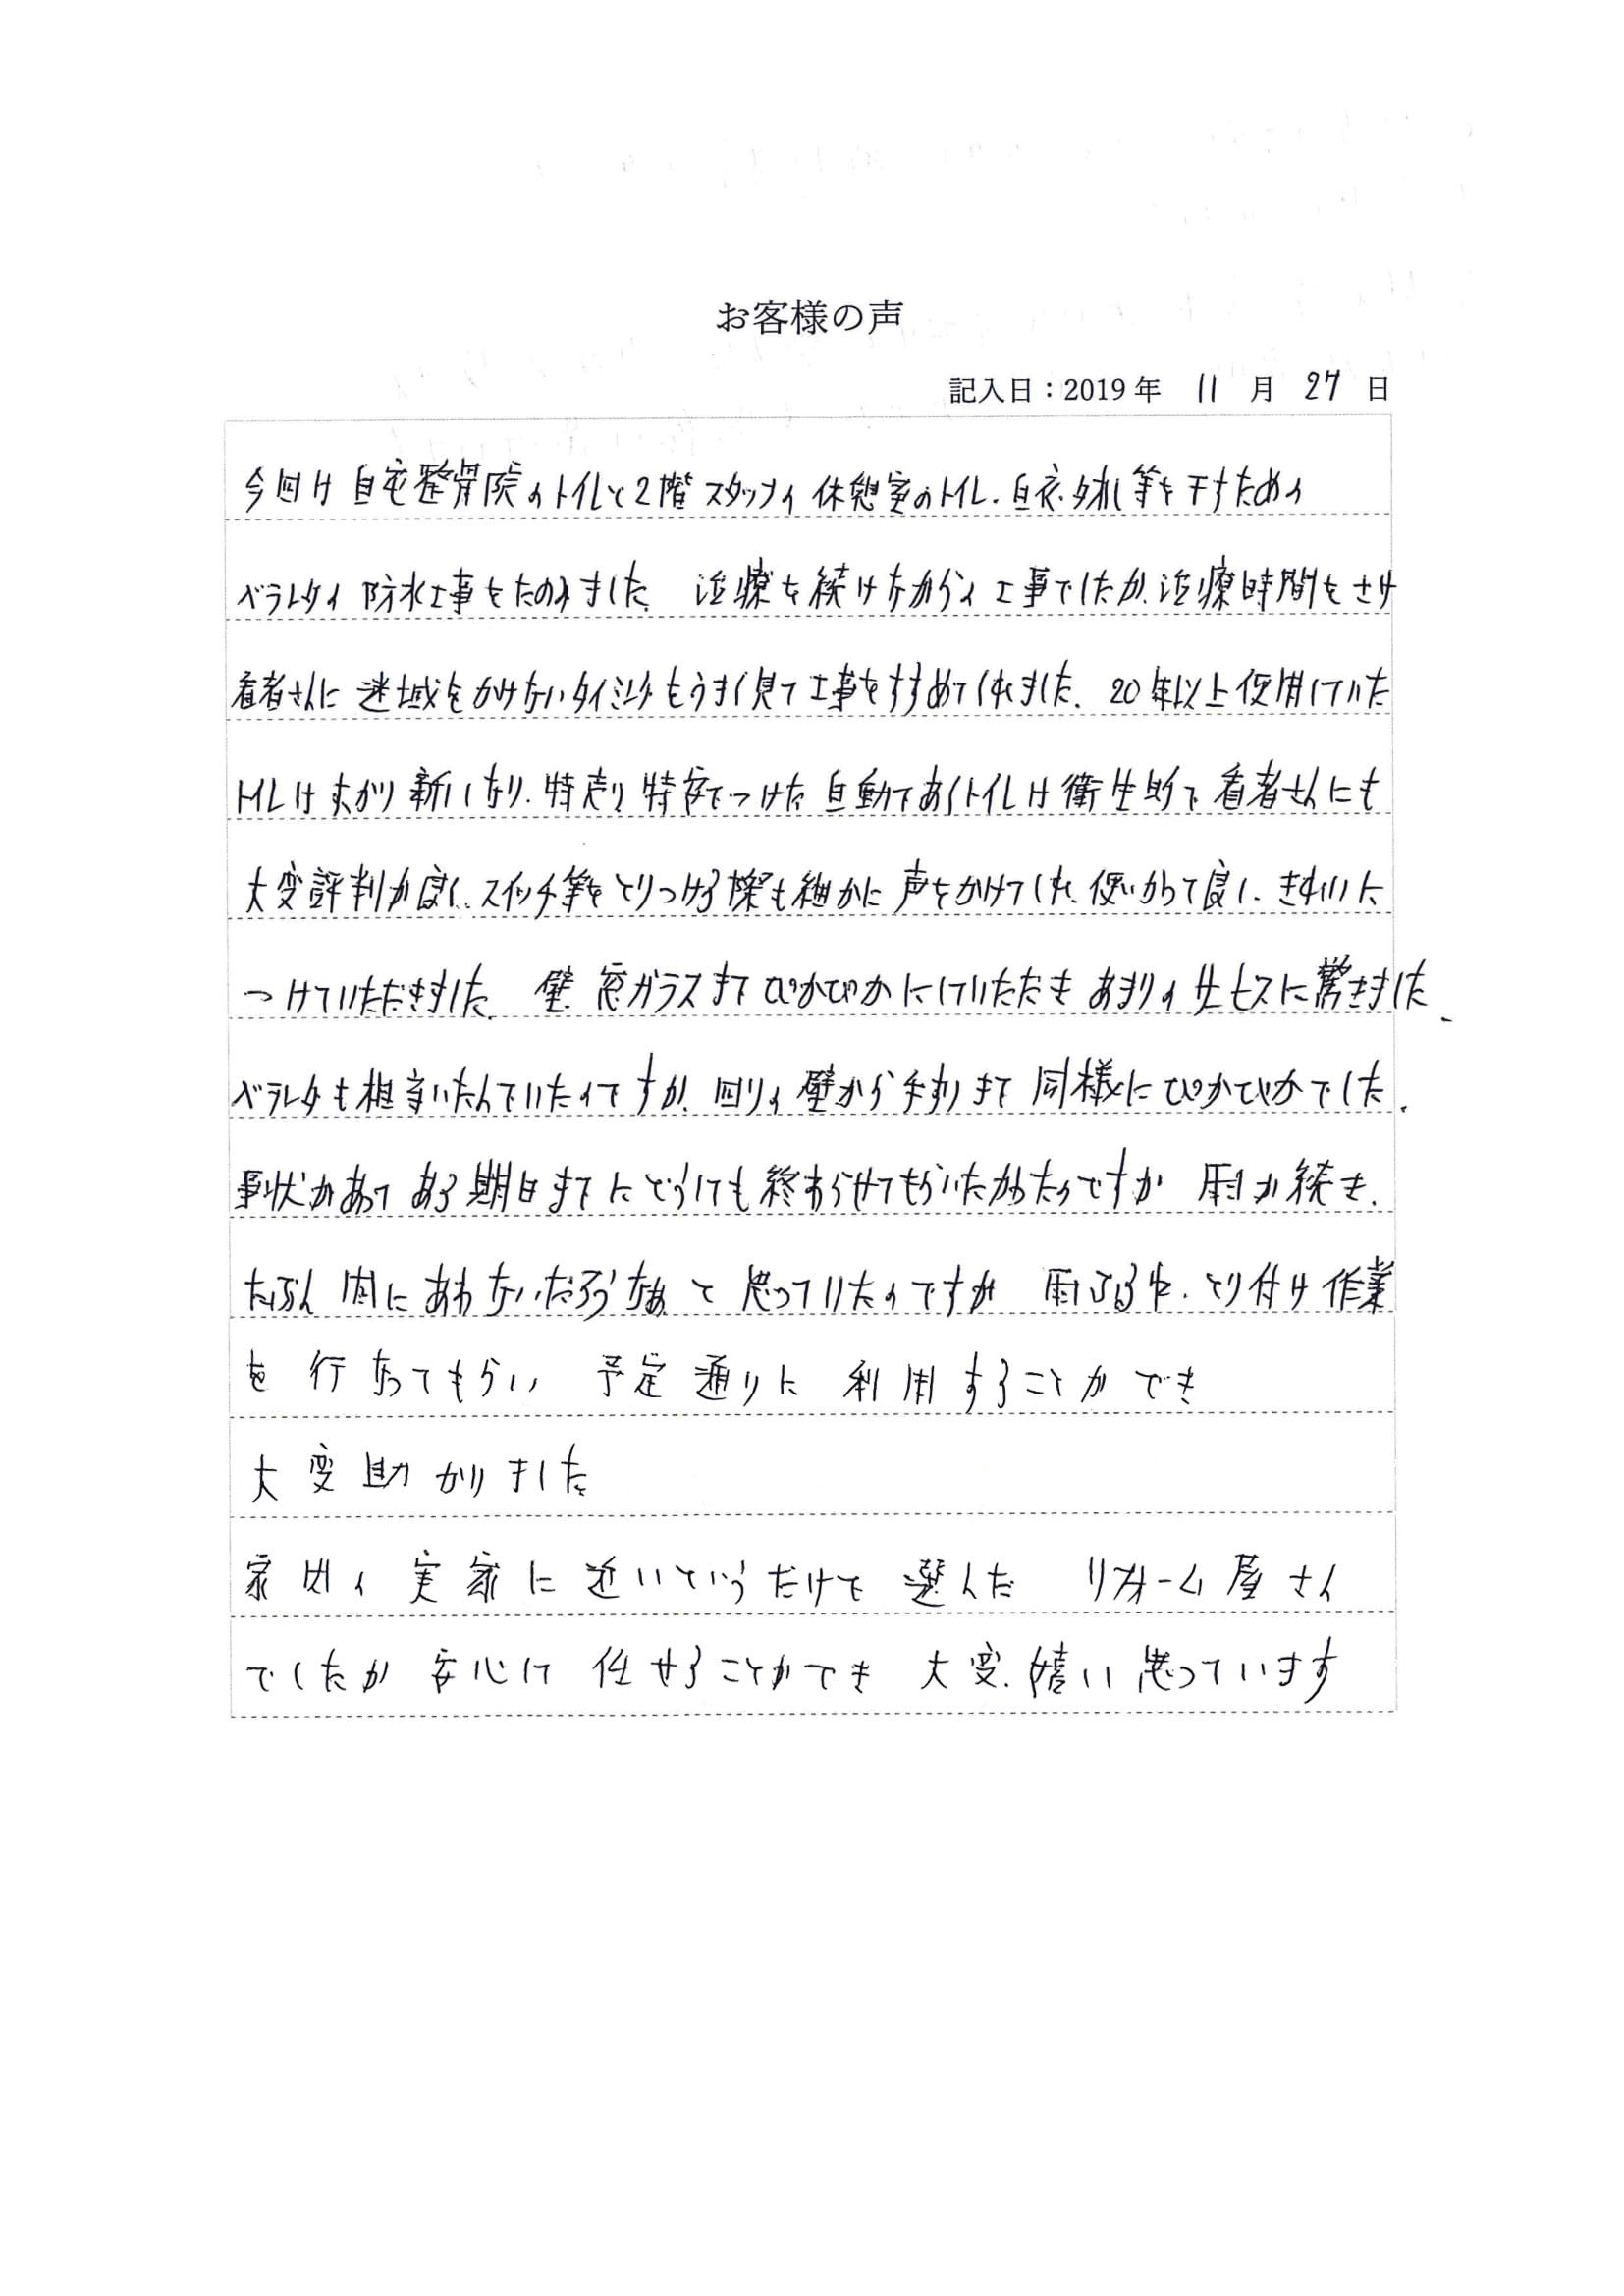 お客様の声
記入日：2019年 11月 27日
今回は自宅整骨院のトイレと2階スタッフの休憩室のトイレ、白衣、タオル等を干すための
ベランダの防水工事をたのみました。治療を続けながらの工事でしたが、治療時間をさけ
患者さんに迷惑をかけないタイミングもうまく見て工事をすすめてくれました。20年以上使用していた
トイレはすっかり新しくなり、特に
自動であくトイレは衛生的で患者さんにも
大変評判が良く、スイッチ等をとりつける際も細かに声をかけてくれ、使いがって良く、きれいに
つけていただきました。壁、窓ガラスまでぴかぴかにしていただき あまりのサービスに驚きました。
ベランダも相当いたんでいたのですが、回りの壁から手すりまで同様にぴかぴかでした。
事状があってある期日までにどうしても終わらせてもらいたかったのですが 雨が続き、
たぶん 間にあわないだろうなぁ と 思っていたのですが 雨ふる中、とり付け作業
を 行なってもらい 予定通りに 利用することができ
大変助かりました
家内の 実家に 近いというだけで 選んだ リフォーム屋さん
でしたが 安心して 任せることができ 大変、嬉しい 思っています